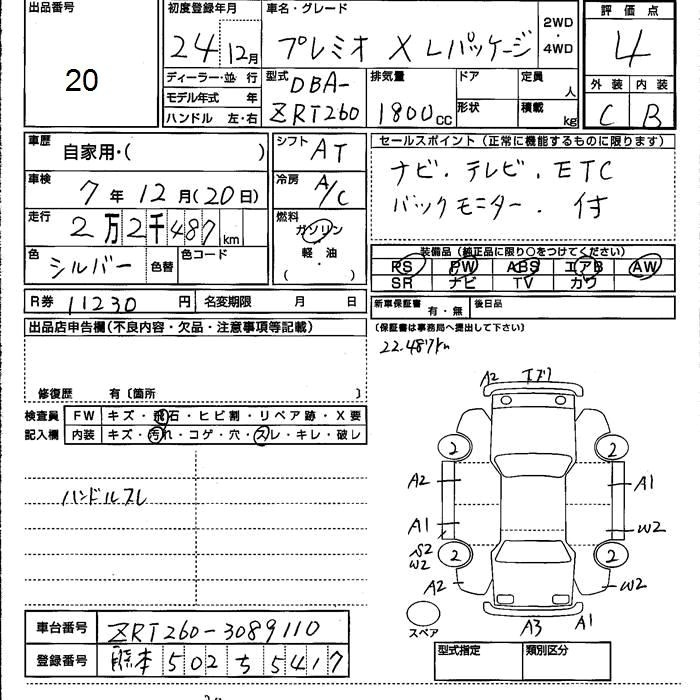 出品番号 初度登録年月 車名・グレード 2WD・4WD 評価点
20 24 12月 プレミオ X Lパッケージ 4
ディーラー・並 行 型式 DBA- 排気量 ドア 定員 人 外装 内装
モデル年式 年
ハンドル 左・右 ZRT260 1800cc 形状 積載 kg C B
車歴 自家用・( ) シフト AT セールスポイント(正常に機能するものに限ります)
車検 7年12月(20日) 冷房 A/C ナビ・テレビ・ETC
走行 2万2千487km 燃料 ガソリン バックモニター・付
軽・油
( )
色 シルバー 色替 色コード 装備品(純正品に限り○をつけてください)
RS PW ABS エアB AW
SR ナビ TV カワ
R券 11230円 名変期限 月 日 新車保証書 有・無 後日品
出品店申告欄(不良内容・欠品・注意事項等記載) (保証書は事務局へ提出して下さい)
22.487km
修復歴 有〔箇所 〕
検査員 FW キズ・飛石・ヒビ割・リペア跡・X要
記入欄 内装 キズ・汚れ・コゲ・穴・スレ・キレ・破レ
ハンドルスレ
A2 エグリ
2 2
A2 A1
A1 W2
S2
W2 2 2
A2 W2
スペア A3 A1
車台番号 ZRT260-3089110
登録番号 熊本 502 ち 5417
型式指定 類別区分